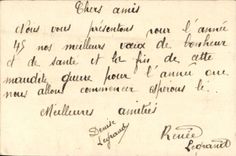 Chers amis
Nous vous présentons pour l'année
45 nos meilleurs vœux de bonheur
et de santé et la fin de cette
maudite guerre pour l'année que
nous allons commencer espérons le.
Meilleures amitiés
Denise
Legrand
Renée
Legrand